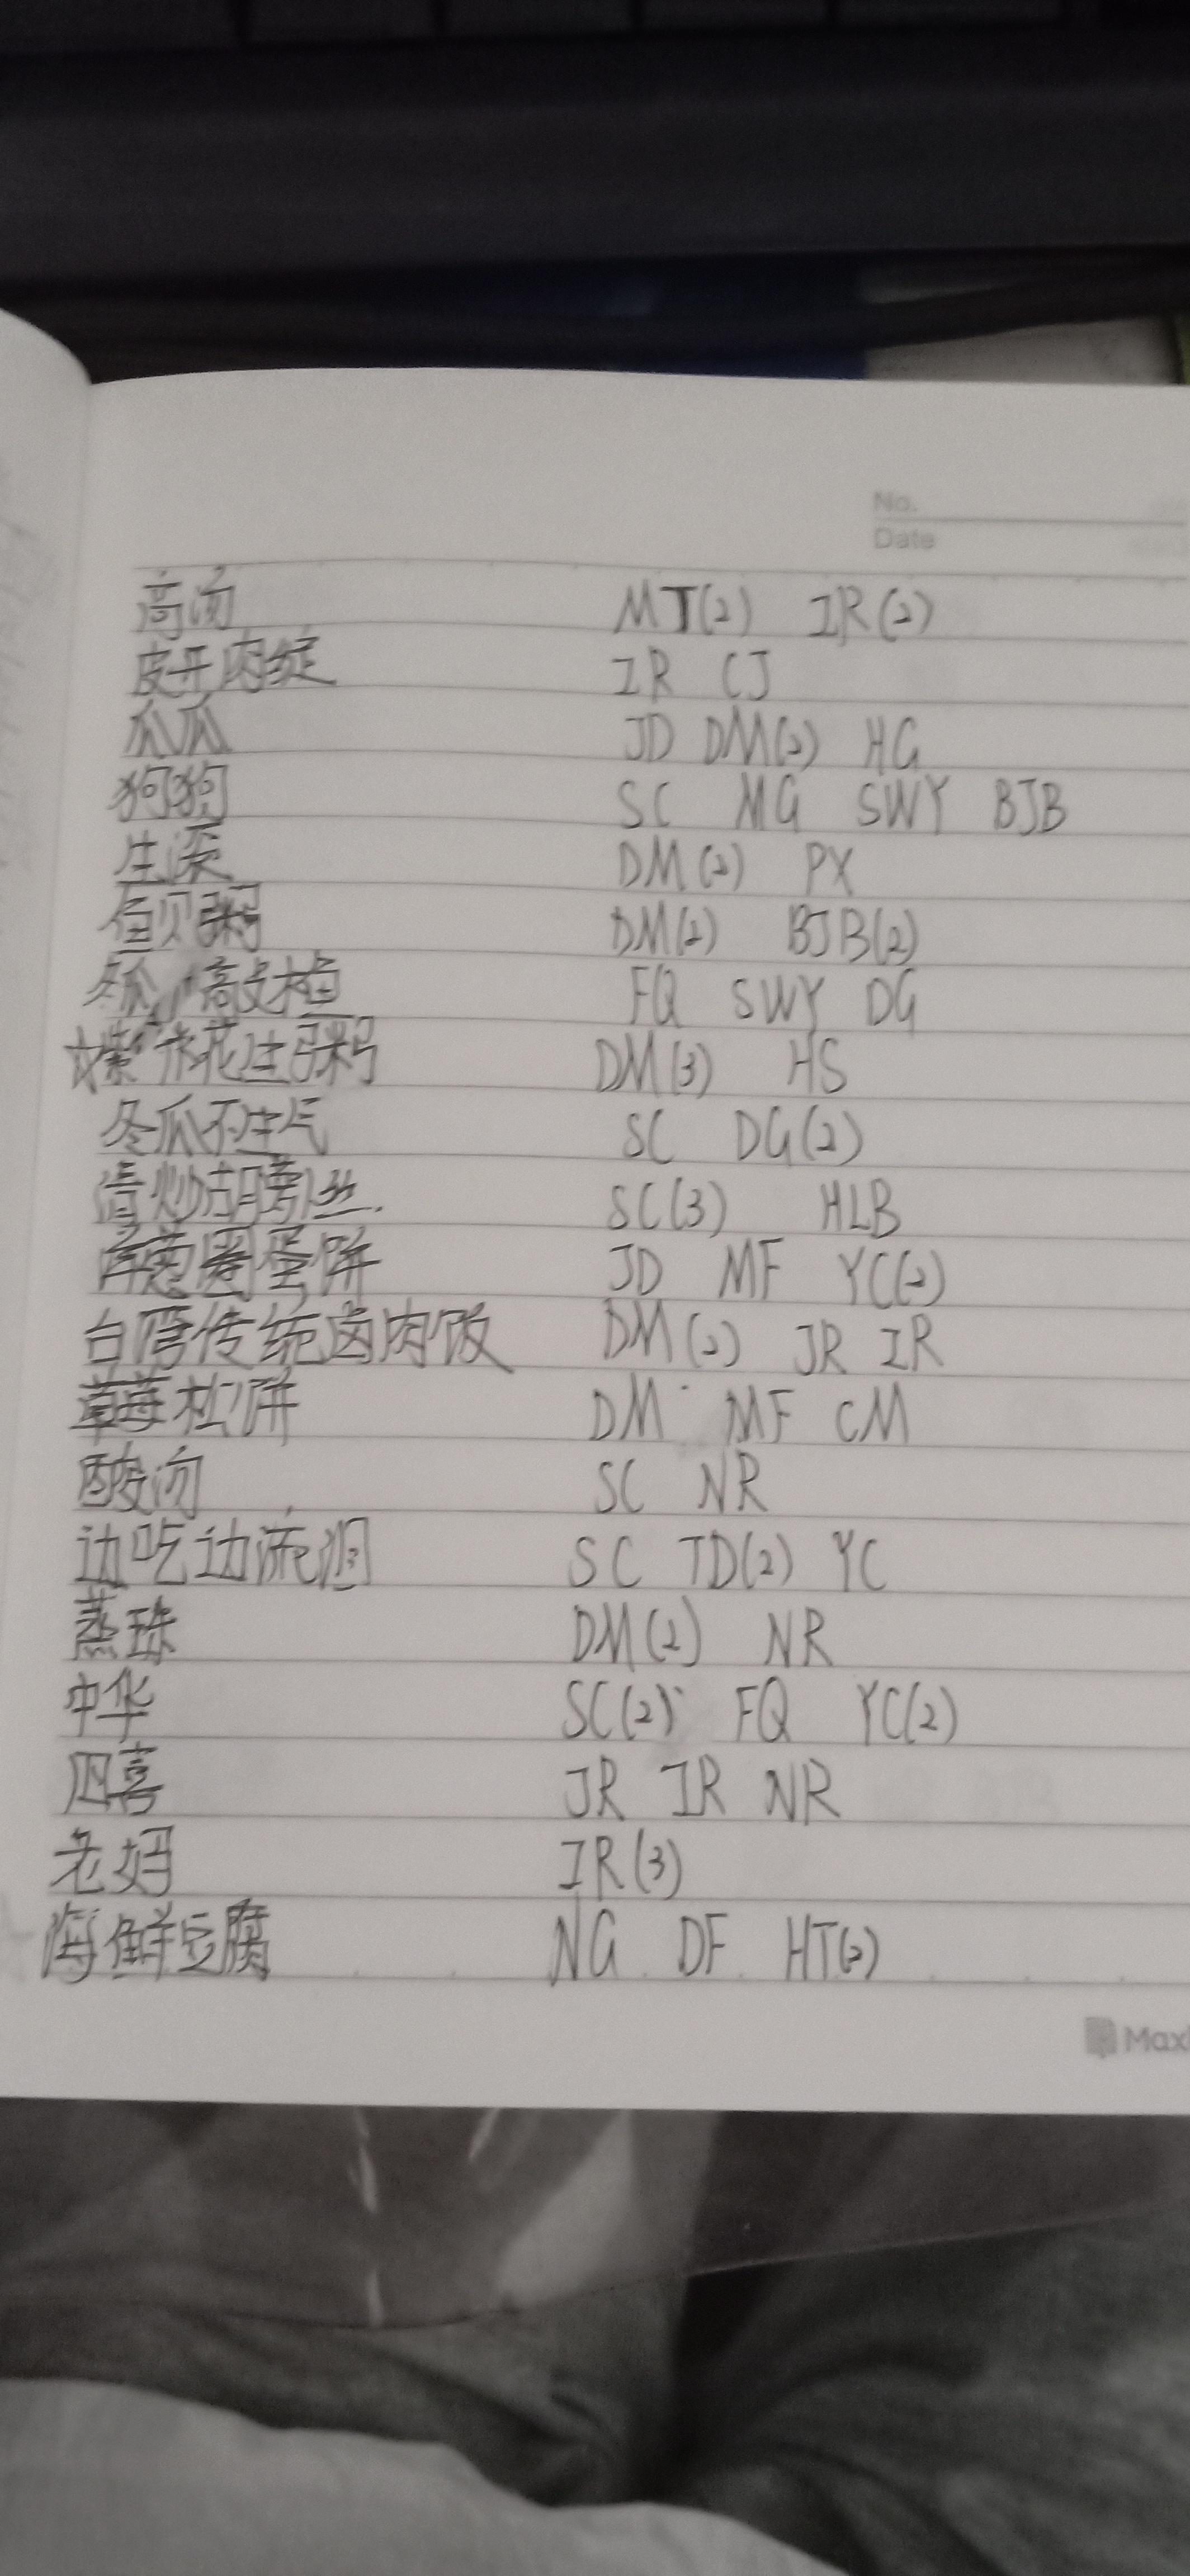 No.
Date
高汤 MT(2) IR(2)
皮开肉绽 IR CJ
瓜瓜 JD DM(2) HG
狗狗 SC MG SWY BJB
生滚 DM(2) PX
鱼贝粥 DM(2) BJB(2)
冬瓜 敲 FQ SWY DG
花生粥 DM(3) HS
冬瓜不生气 SC DG(2)
清炒胡萝卜丝. SC(3) HLB
洋葱圈蛋饼 JD MF YC(2)
台湾传统卤肉饭 DM(2) JR IR
草莓松饼 DM MF CM
酸汤 SC NR
边吃边流泪 SC TD(2) YC
蒸 DM(2) NR
中华 SC(2) FQ YC(2)
四喜 JR IR NR
老妈 IR(3)
海鲜豆腐 NG DF HT(2)